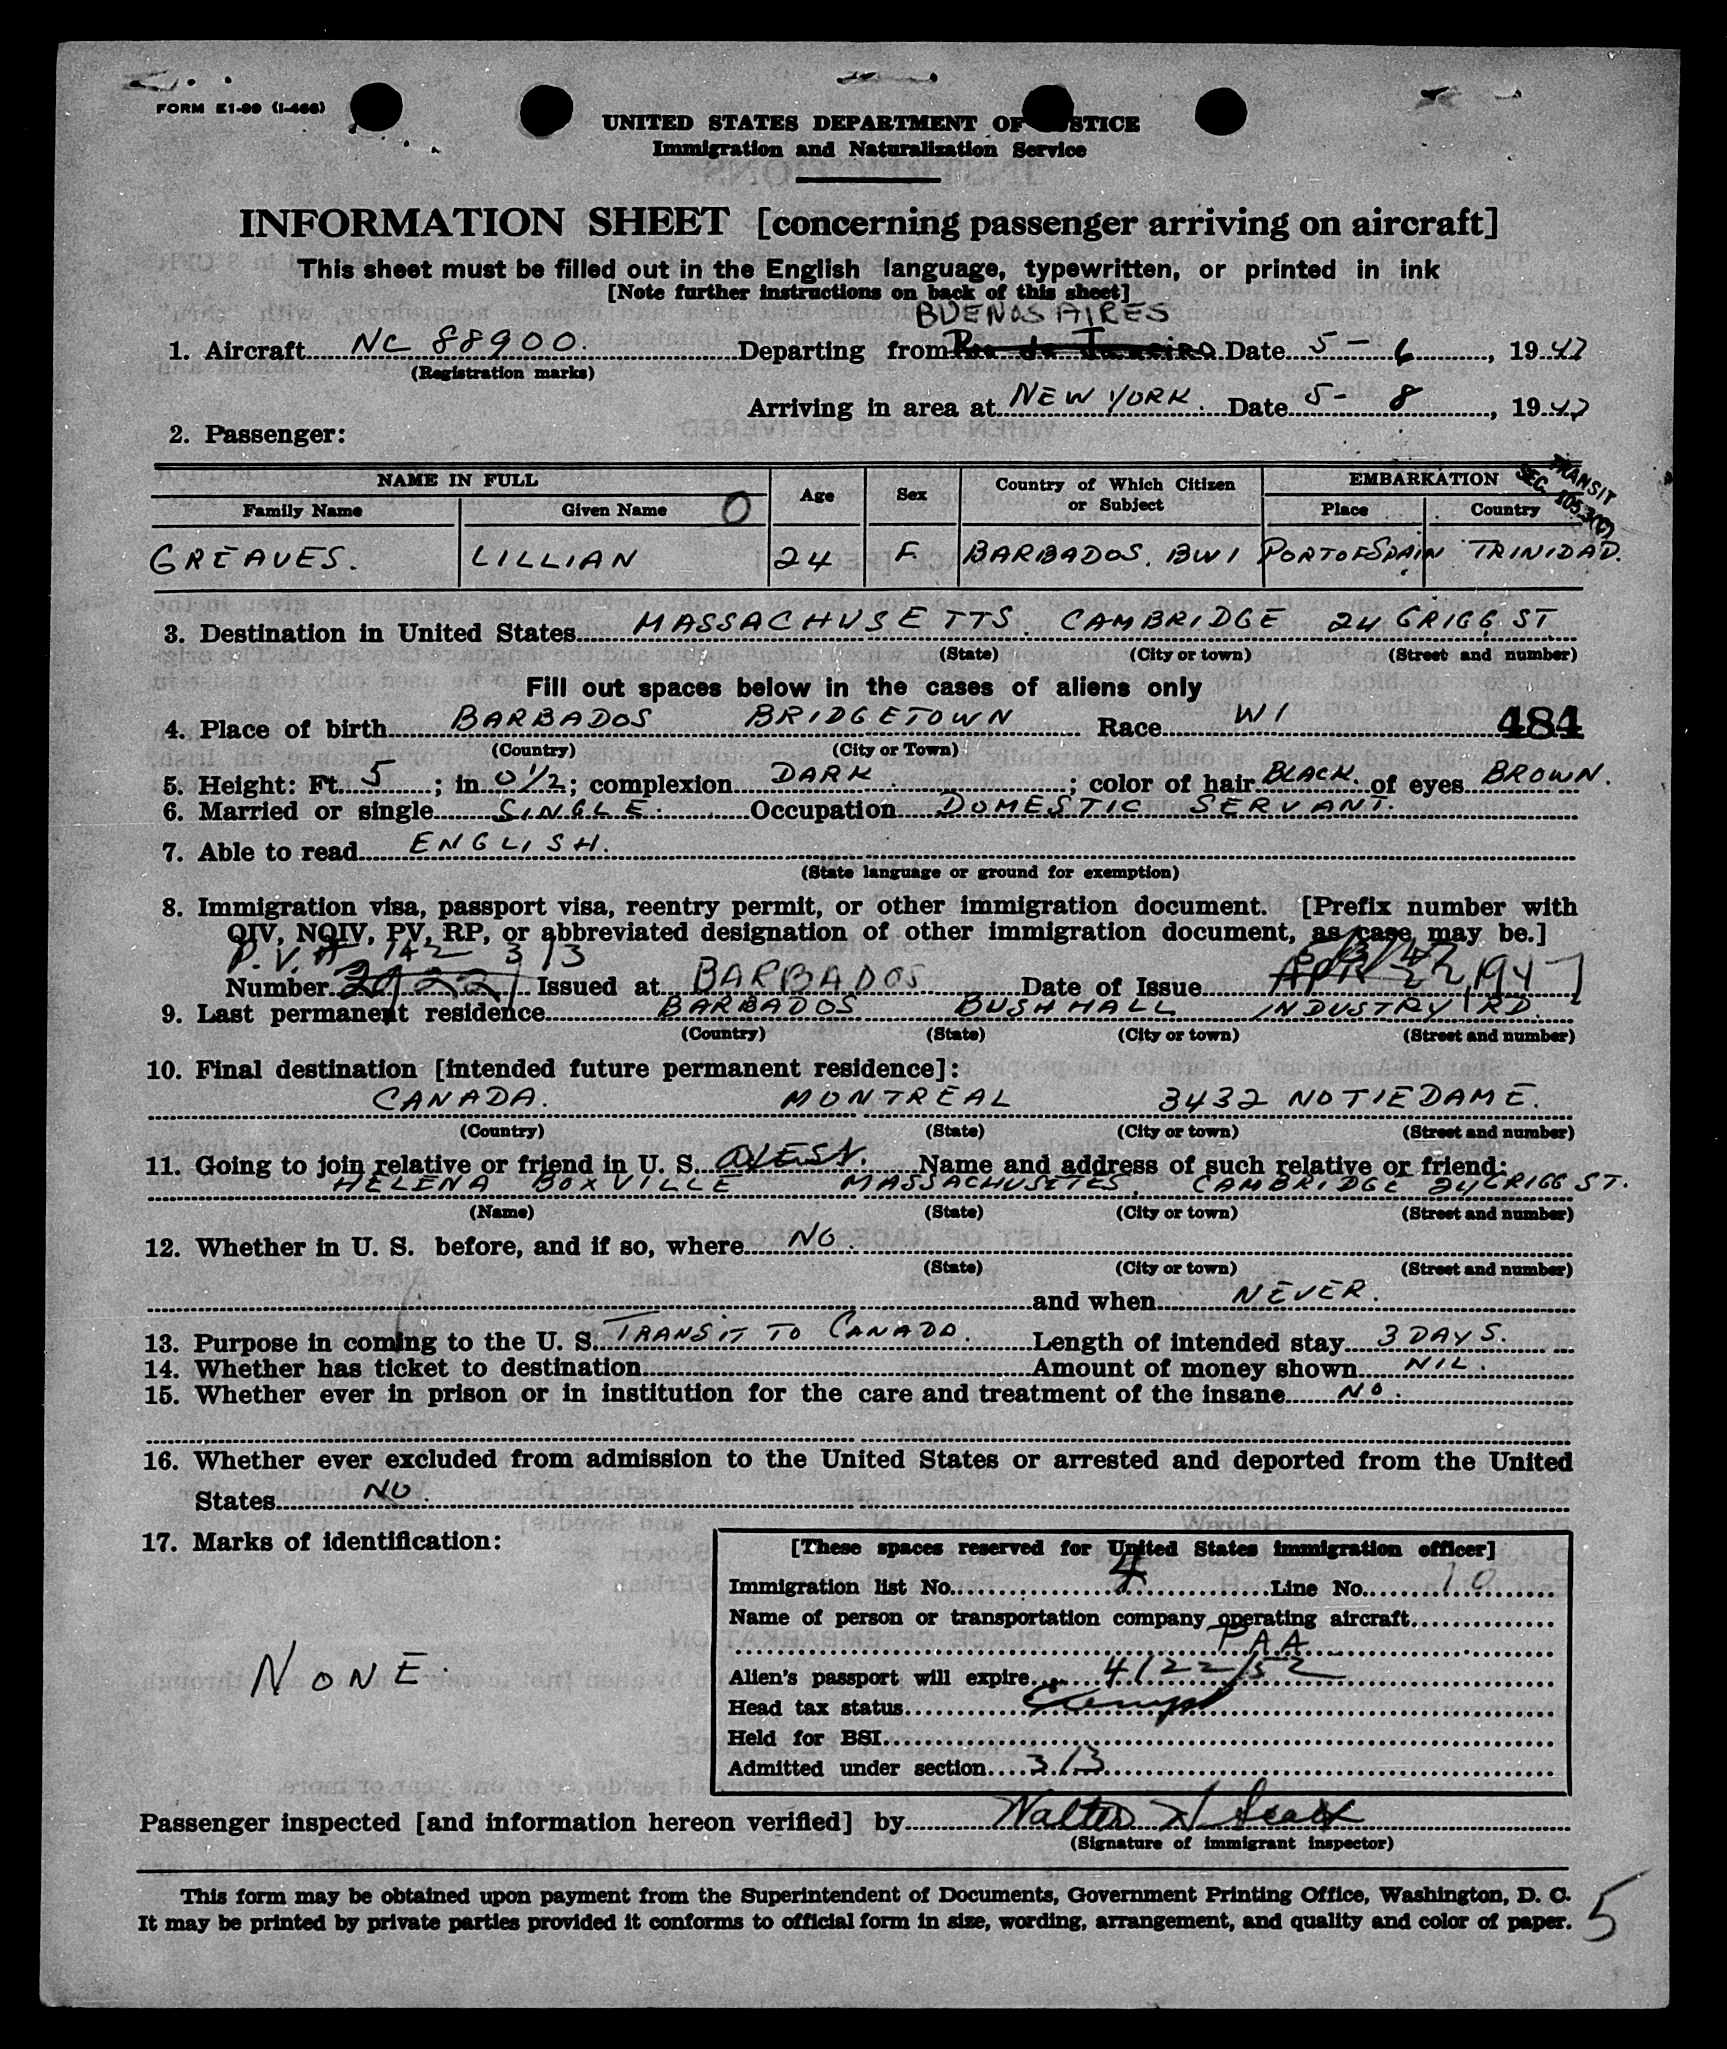 FORM E1-99 (I-466)
UNITED STATES DEPARTMENT OF JUSTICE
Immigration and Naturalization Service
INFORMATION SHEET [concerning passenger arriving on aircraft]
This sheet must be filled out in the English language, typewritten, or printed in ink
[Note further instructions on back of this sheet]
BUENOS AIRES
1. Aircraft NC 88900. Departing from Rio de Janeiro Date 5-6, 1947
(Registration marks)
Arriving in area at NEW YORK. Date 5-8, 1947
2. Passenger:
TRANSIT
NAME IN FULL Age Sex Country of Which Citizen or Subject EMBARKATION SEC.
Family Name Given Name O Place Country
GREAVES. LILLIAN 24 F BARBADOS. BWI PORTOFSPAIN TRINIDAD.
3. Destination in United States MASSACHUSETTS. CAMBRIDGE 24 GRIGG ST
(State) (City or town) (Street and number)
Fill out spaces below in the cases of aliens only
4. Place of birth BARBADOS BRIDGETOWN Race WI 484
(Country) (City or Town)
5. Height: Ft. 5; in. 0 1/2; complexion DARK.; color of hair BLACK. of eyes BROWN.
6. Married or single SINGLE. Occupation DOMESTIC SERVANT.
7. Able to read ENGLISH.
(State language or ground for exemption)
8. Immigration visa, passport visa, reentry permit, or other immigration document. [Prefix number with
QIV, NQIV, PV, RP, or abbreviated designation of other immigration document, as case may be.]
P.V.# 142 313 5/3/47
Number Issued at BARBADOS Date of Issue 22, 1947
9. Last permanent residence BARBADOS BUSHHALL INDUSTRY RD.
(Country) (State) (City or town) (Street and number)
10. Final destination [intended future permanent residence]:
CANADA. MONTREAL 3432 NOTIEDAME.
(Country) (State) (City or town) (Street and number)
11. Going to join relative or friend in U. S. Name and address of such relative or friend:
HELENA BOXVILLE MASSACHUSETES. CAMBRIDGE 24 GRIGG ST.
(Name) (State) (City or town) (Street and number)
12. Whether in U. S. before, and if so, where NO.
(State) (City or town) (Street and number)
and when NEVER.
13. Purpose in coming to the U. S. TRANSIT TO CANADA. Length of intended stay 3 DAYS.
14. Whether has ticket to destination Amount of money shown NIL.
15. Whether ever in prison or in institution for the care and treatment of the insane NO.
16. Whether ever excluded from admission to the United States or arrested and deported from the United
States NO.
17. Marks of identification:
NONE.
[These spaces reserved for United States immigration officer]
Immigration list No. 4 Line No. 10
Name of person or transportation company operating aircraft
PAA
Alien's passport will expire 4/22/52
Head tax status Exempt
Held for BSI
Admitted under section 3/3
Passenger inspected [and information hereon verified] by Walter
(Signature of immigrant inspector)
This form may be obtained upon payment from the Superintendent of Documents, Government Printing Office, Washington, D. C.
It may be printed by private parties provided it conforms to official form in size, wording, arrangement, and quality and color of paper.
5